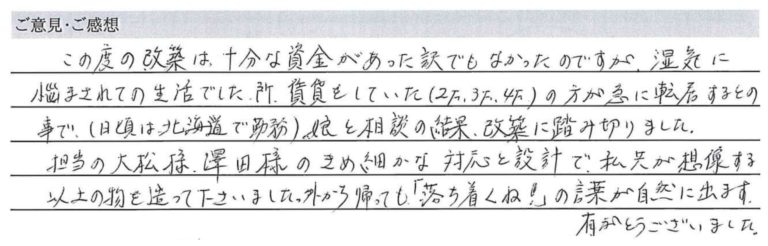 ご意見・ご感想
この度の改築は、十分な資金があった訳でもなかったのですが、湿気に
悩まされての生活でした。所、賃貸をしていた(2F、3F、4F)の方が急に転居するとの
事で、(日頃は北海道で勤務)娘と相談の結果、改築に踏み切りました。
担当の大松様、澤田様のきめ細かな対応と設計で、私共が想像する
以上の物を造って下さいました。外から帰っても、「落ち着くね!!」の言葉が自然に出ます。
有がとうございました。